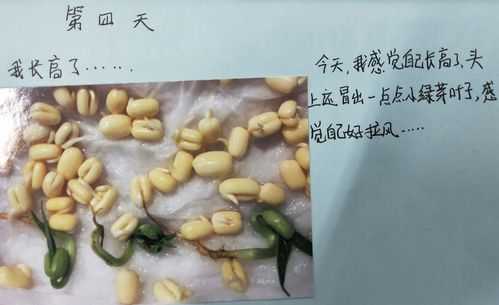 第四天
我长高了……
今天,我感觉自己长高了,头
上还冒出一点点小绿芽叶子,感
觉自己好拉风……